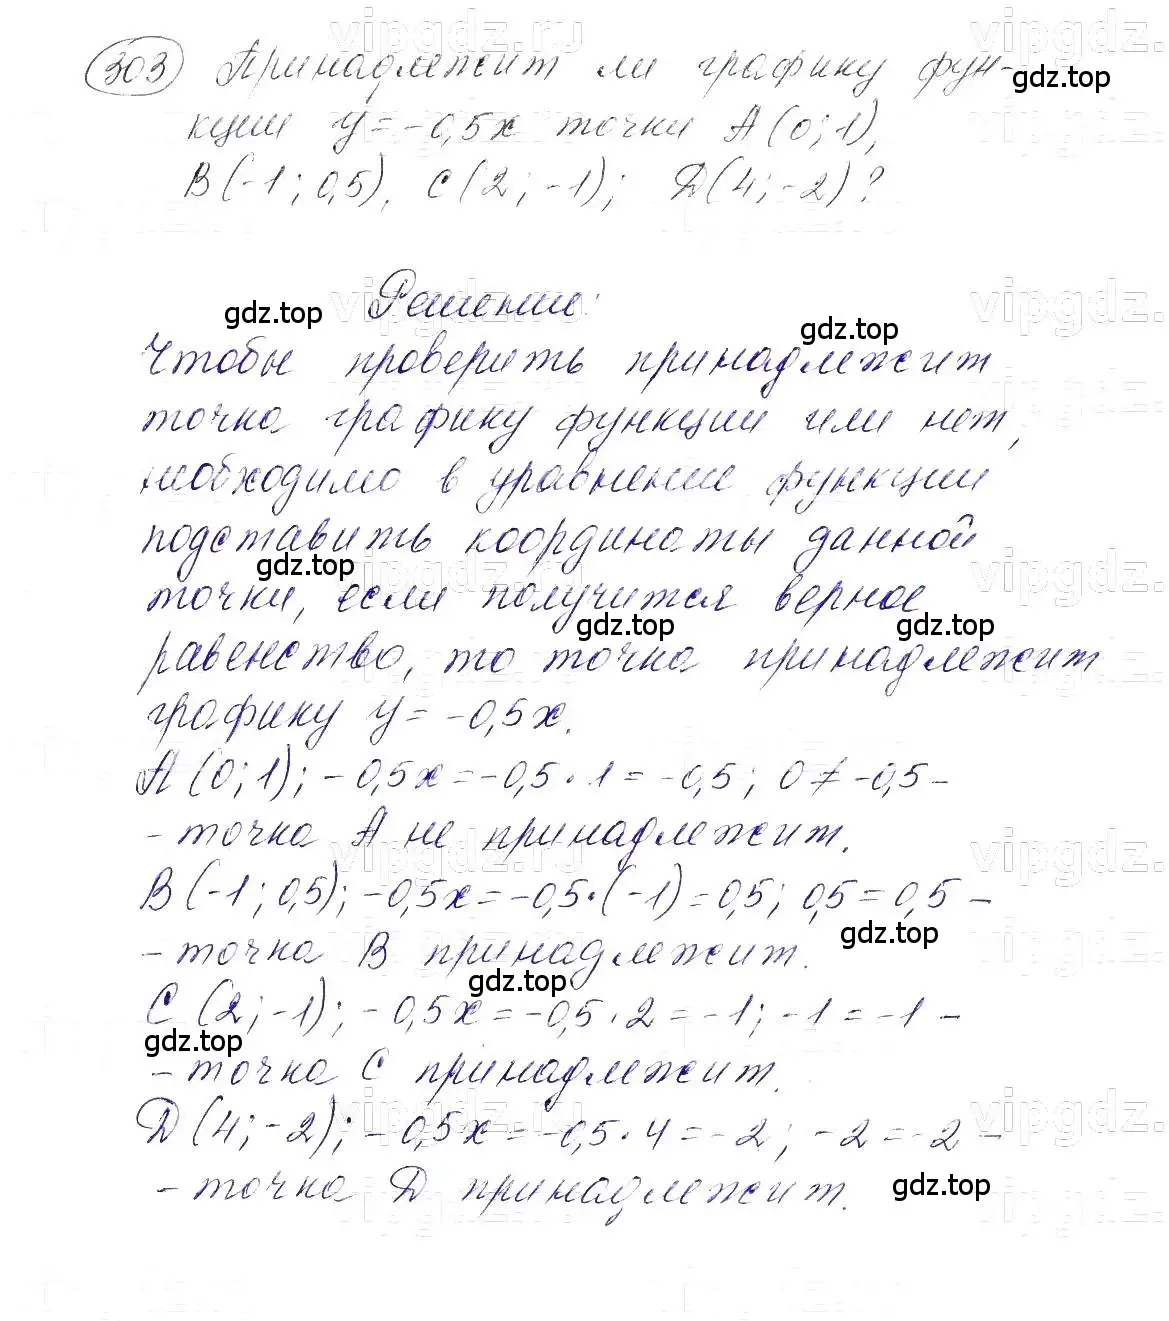 303 Принадлежит ли графику фун-
gdz.top
кции y = -0,5x точки A(0; 1),
B(-1; 0,5), C(2; -1); D(4; -2)?
Решение:
gdz.top
gdz.top
Чтобы проверить принадлежит
точка графику функции или нет,
необходимо в уравнение функции
подставить координаты данной
gdz.top
точки, если получится верное
gdz.top
gdz.top
равенство, то точка принадлежит
графику y = -0,5x.
A(0; 1); -0,5x = -0,5 · 1 = -0,5; 0 ≠ -0,5 -
- точка A не принадлежит.
B(-1; 0,5); -0,5x = -0,5 · (-1) = 0,5; 0,5 = 0,5 -
gdz.top
- точка B принадлежит.
gdz.top
C (2; -1); -0,5x = -0,5 · 2 = -1; -1 = -1 -
gdz.top
- точка C принадлежит.
D(4; -2); -0,5x = -0,5 · 4 = -2; -2 = -2 -
- точка D принадлежит.
gdz.top
vipgdz.ru
vipgdz.
vipgdz.ru
vipgdz.
vipgdz.ru
vipgdz.
vipgdz.ru
vipgdz.
vipgdz.ru
vipgdz.